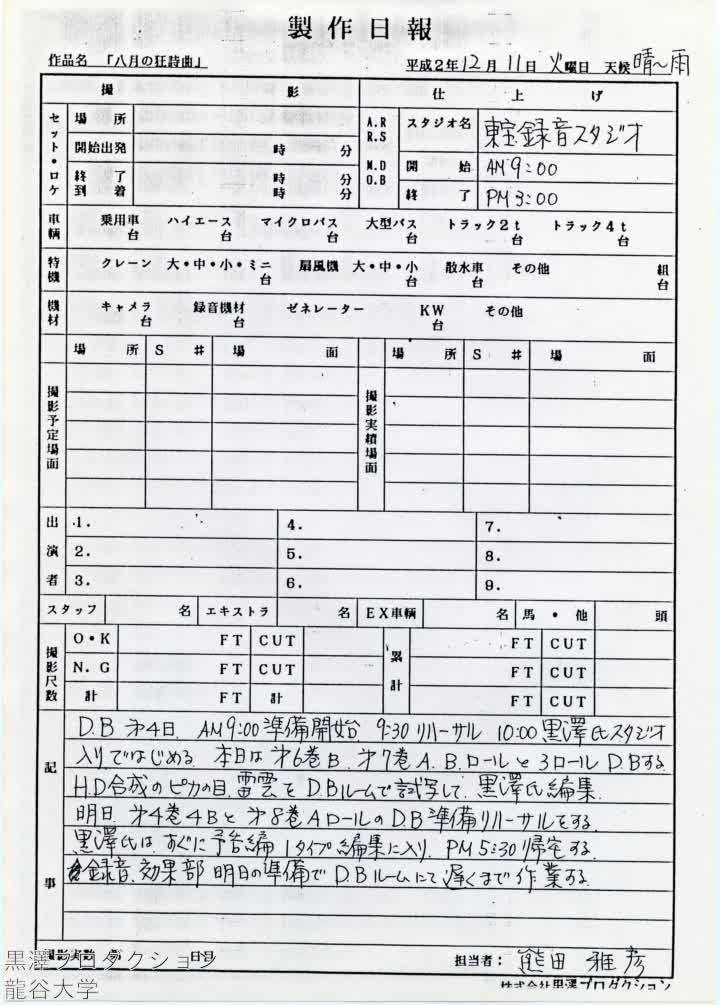 製作日報
作品名 「八月の狂詩曲」 平成2年12月11日 火曜日 天候 晴〜雨
撮影 仕上げ
セット・ロケ 場所 A.R R.S スタジオ名 東宝録音スタジオ
開始出発 時 分 M.D O.B 開始 AM 9:00
終了 時 分 終了 PM 3:00
到着 時 分
車輌 乗用車 台 ハイエース 台 マイクロバス 台 大型バス 台 トラック2t 台 トラック4t 台
特機 クレーン 大・中・小・ミニ 台 扇風機 大・中・小 台 散水車 台 その他 組 台
機材 キャメラ 台 録音機材 台 ゼネレーター KW 台 その他
場所 S # 場面 場所 S # 場面
撮影予定場面 撮影実績場面
出演者 1. 4. 7.
2. 5. 8.
3. 6. 9.
スタッフ 名 エキストラ 名 EX車輌 名 馬・他 頭
撮影尺数 O・K FT CUT 累計 FT CUT
N.G FT CUT FT CUT
計 FT 計 FT CUT
記事
D.B 才4日. AM9:00 準備開始. 9:30 リハーサル 10:00 黒澤氏スタジオ
入りではじめる. 本日は 才6巻B. 才7巻 A.B.ロールと 3ロール D.Bする.
H.D合成のピカの目, 雷雲を D.Bルームで試写して. 黒澤氏編集.
明日. 才4巻4Bと 才8巻Aロールの D.B準備リハーサルをする.
黒澤氏は. すぐに予告編 1タイプ編集に入り. PM 5:30 帰宅する.
録音.効果部 明日の準備で D.Bルームにて遅くまで作業する.
担当者: 熊田 雅彦
株式会社黒澤プロダクション
黒澤プロダクション
龍谷大学